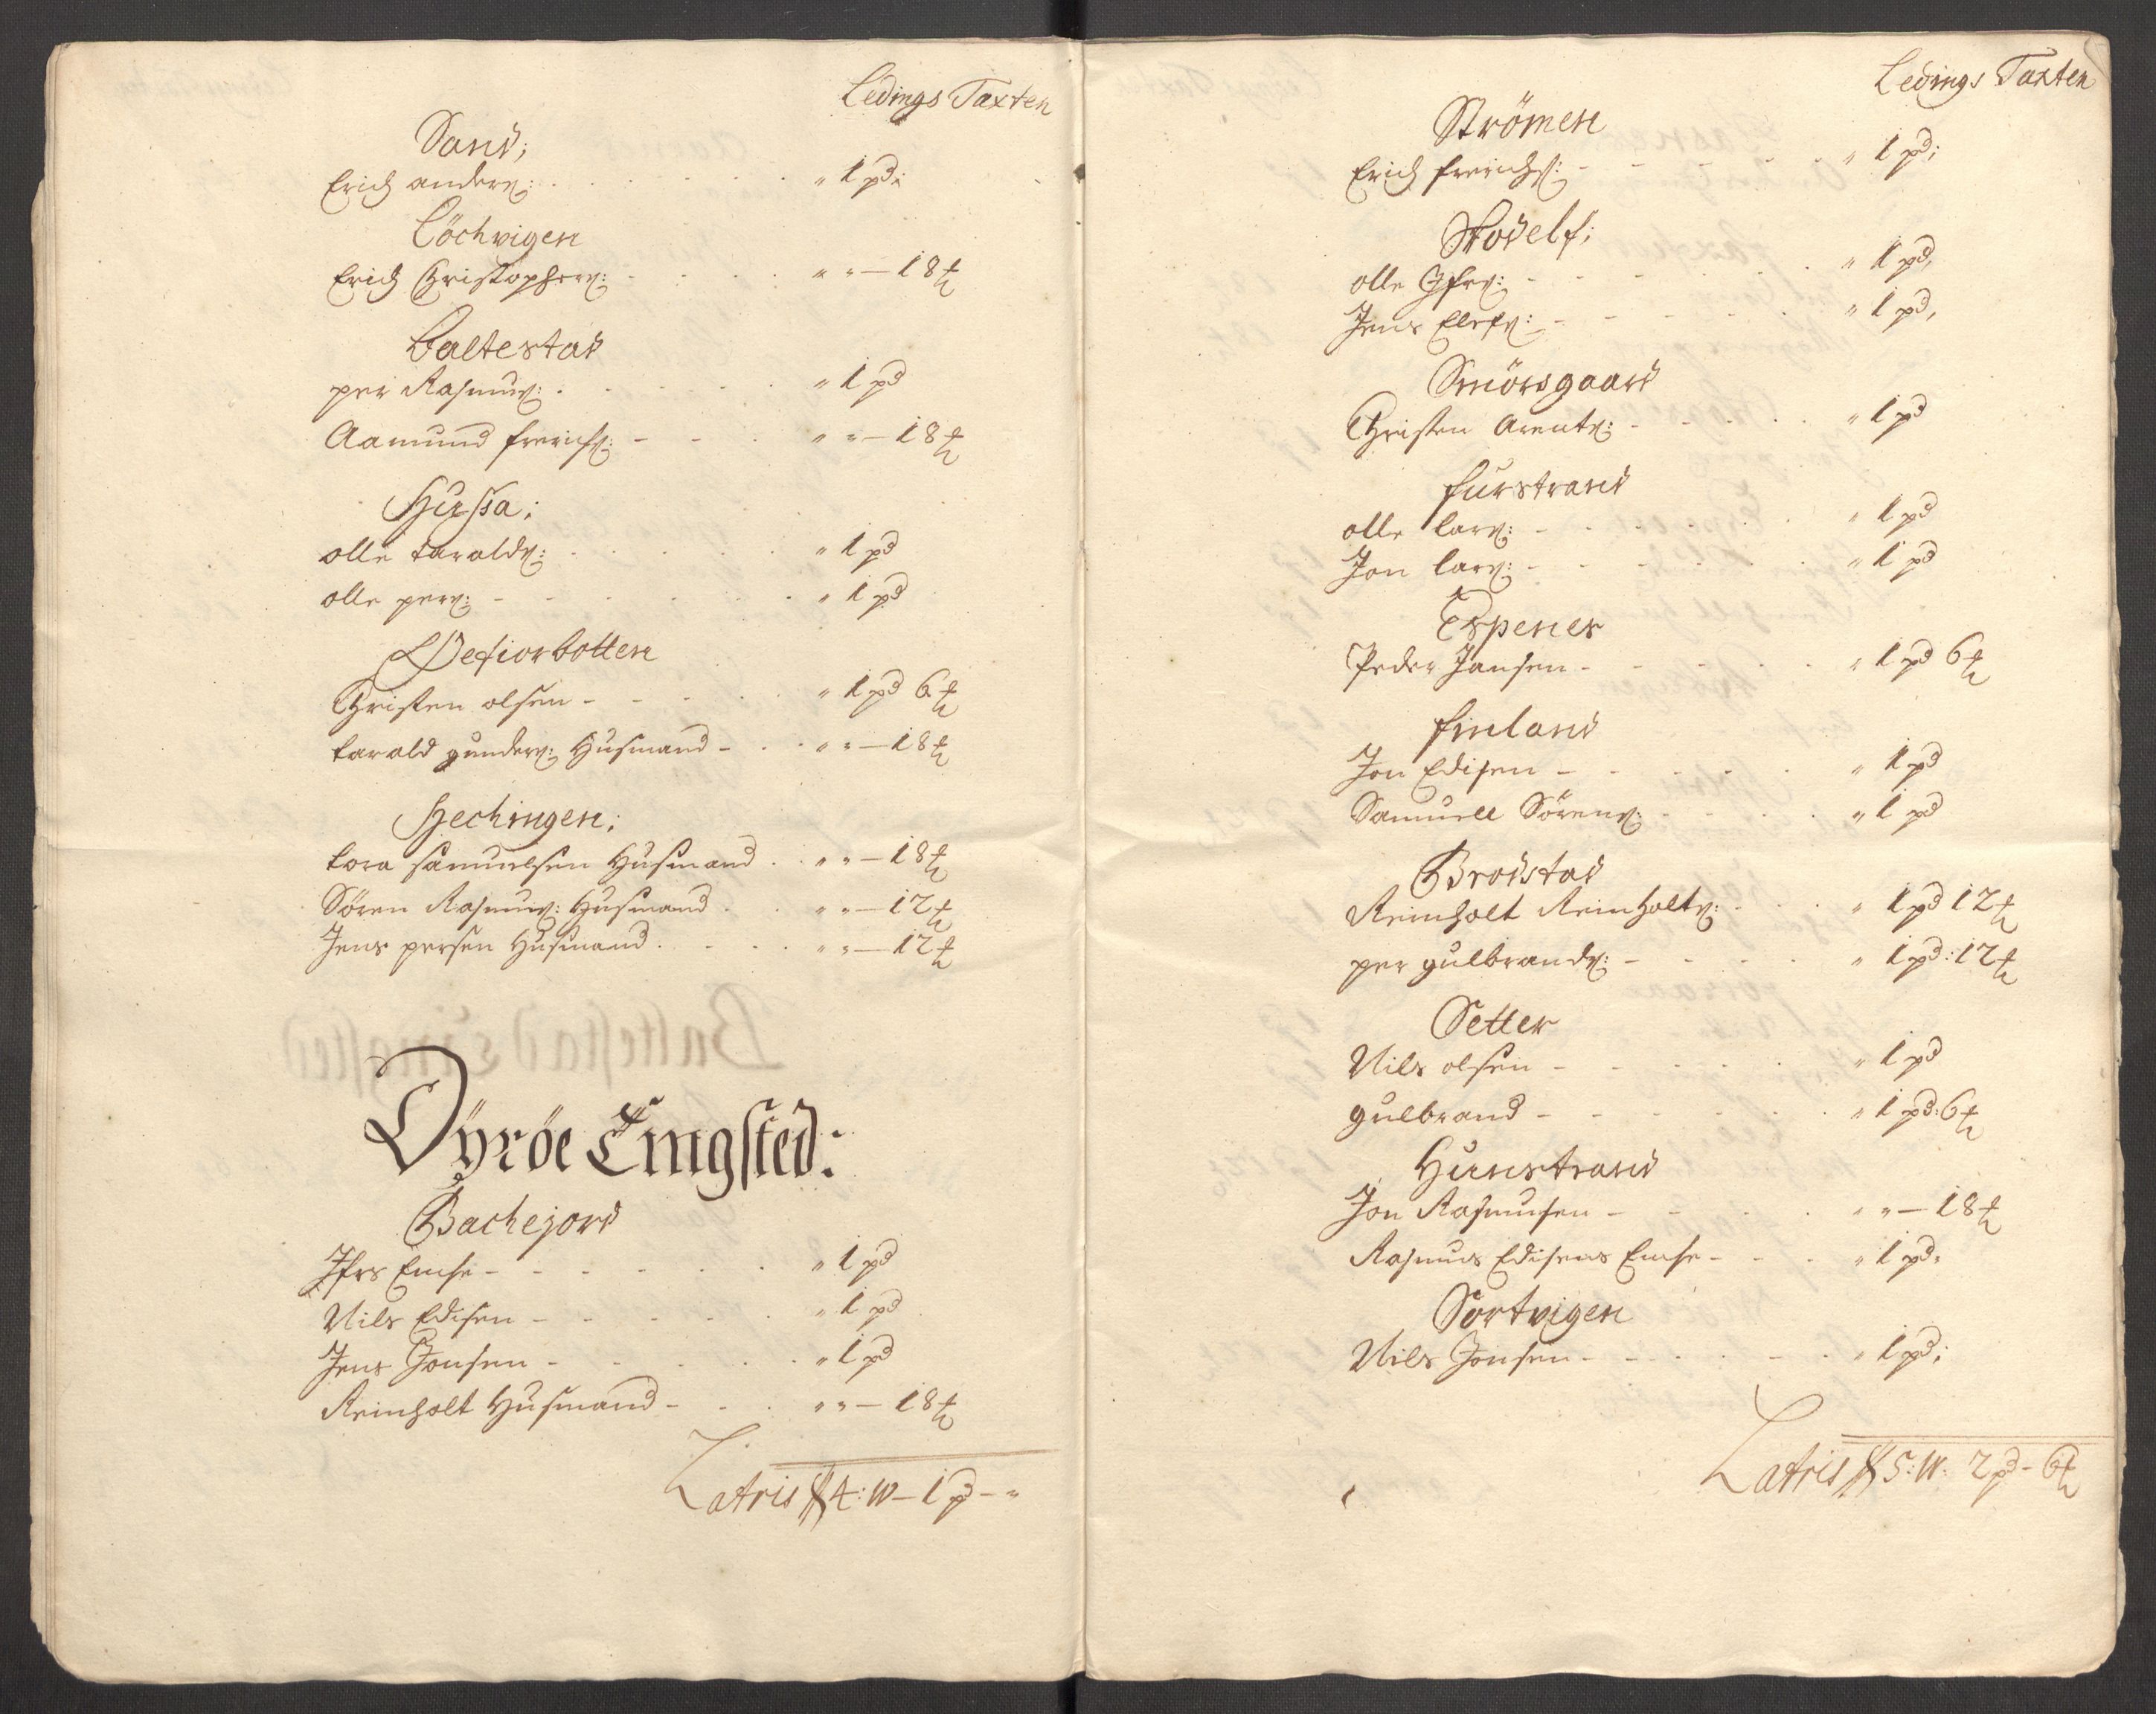 Ledings Taxten
Sand;
Erich anders: . . . . . . " 1 pd;
Löchvigen
Erich Christophers: - . . . " " — 18 ℔
Baltestad
per Rasmus: . . . . . " 1 pd
Aamund frerichs: - - . " " — 18 ℔
Hussa;
olle taralds: . . . . . " 1 pd
olle pers: - - . . . . " 1 pd
Christen olsen - - - . . " 1 pd 6 ℔
tarald gunders: Husmand - . . " " — 18 ℔
Hechingen;
tora samuelsen Husmand . . " " — 18 ℔
Sören Rasmus: Husmand . . " " — 12 ℔
Jens persen Husmand . - . . " " — 12 ℔
Dÿröe Tingsted:
Bachejord
Ifrs Enche - - - - - . " 1 pd
Nils Edisen - - - - . . " 1 pd
Jens Jonsen - - - . . . " 1 pd
Reinholt Husmand - . . " " — 18 ℔
Latris 4: W — 1 pd — "
Ledings Taxten
Strömen
Erich frerichs: - - - - . . " 1 pd;
Skodelf;
olle Ifrs: - - - - . . " 1 pd,
Jens Elefs: - - - . . . " 1 pd,
Smörsgaard
Christen Arents: - - . . . " 1 pd
furstrand
olle lars: - - - . . . " 1 pd
Jon lars: - - - - . . " 1 pd
Espenes
Peder Jansen - - - . . . " 1 pd 6 ℔
finland
Jon Edisen - - - - - . " 1 pd
Samuell Sörens: - - . . . " 1 pd
Brodstad
Reinholt Reinholts: - . . " 1 pd 12 ℔
per gulbrands: - - - - . " 1 pd: 12 ℔
Setter
Nils olsen - - - - - . " 1 pd
gulbrand - - - - - . . " 1 pd: 6 ℔
Hunstrand
Jon Rasmusen - - . . " " — 18 ℔
Rasmus Edisens Enche - - . " 1 pd.
Sortvigen
Nils Jonsen - - - . - . " 1 pd;
Latris 5: W: 2 pd - 6 ℔